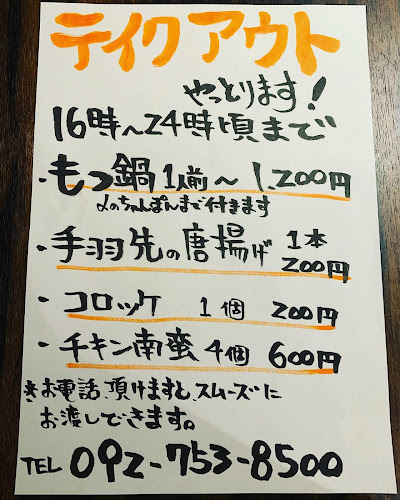 テイクアウト
やっとります!
16時〜24時頃まで
・もつ鍋 1人前〜 1,200円
〆のちゃんぽんまで付きます
・手羽先の唐揚げ 1本 200円
・コロッケ 1個 200円
・チキン南蛮 4個 600円
※お電話頂けますと、スムーズに
お渡しできます。
TEL 092-753-8500